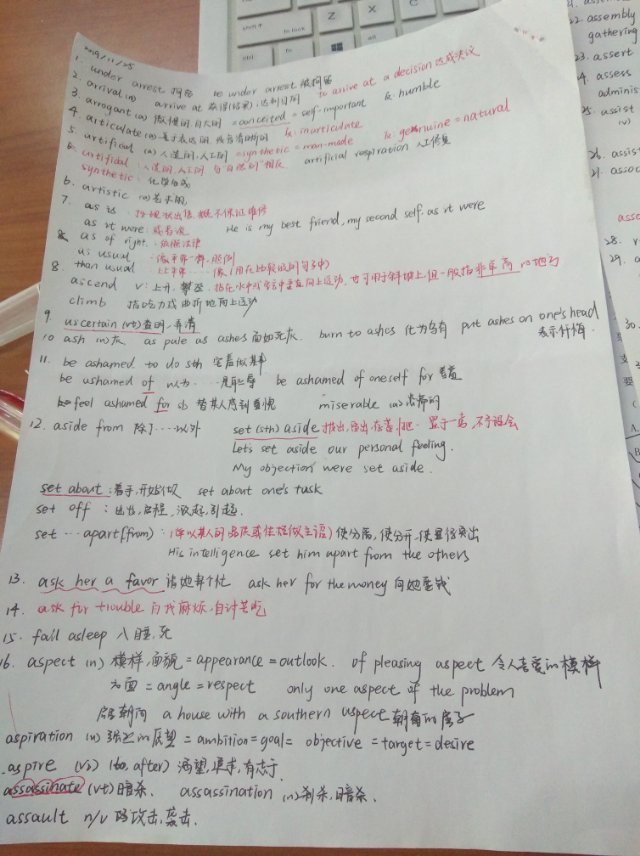 2019/11/25
1. under arrest 拘留 be under arrest 被拘留
2. arrival (n) arrive at 获得(结果),达到目的 to arrive at a decision 达成决议
3. arragant (a) 傲慢的,自大的 = conceited = self-important &: humble
4. articulate (a) 善于表达的 &: inarticulate
5. artificial (a) 人造的,人工的 = synthetic = man-made &: genuine = natural
& artificial: 人造的,人工的 与"自然的"相反 artificial respiration 人工呼吸
synthetic: 化学合成
6. artistic (a) 艺术的
7. as is: 按现状出售,概不保证维修
as it were: 或者说 He is my best friend, my second self. as it were
& as of right: 依照法律
as usual: 像平常一样,照例
8. than usual 比平常……
ascend v: 上升,攀登
climb 指吃力或曲折地向上运动
9. ascertain (vt) 查明,弄清
10 ash (n) 灰 as pale as ashes 面如死灰 burn to ashes 化为乌有 put ashes on one's head 表示忏悔.
11. be ashamed to do sth 羞于做某事
be ashamed of n 以为……是耻辱 be ashamed of oneself for 羞愧
feel ashamed for sb 替某人感到羞愧 miserable (a) 悲痛的
12. aside from 除了……以外 set (sth) aside
Lets set aside our personal feeling.
My objection were set aside.
set about: 着手,开始做 set about one's task
set off: 出发,启程,激起,引起.
set … apart (from): (常以某人的品质或性格做主语) 使分离,使分开,使显得突出
His intelligence set him apart from the others
13. ask her a favor 请她帮个忙 ask her for the money 向她要钱
14. ask for trouble 自找麻烦,自讨苦吃
15. fall asleep 入睡,死
16. aspect (n) 模样,面貌 = appearance = outlook. of pleasing aspect 令人喜爱的模样
方面 = angle = respect only one aspect of the problem
朝向 a house with a southern aspect 朝南的房子
aspiration (n) 强烈的愿望 = ambition = goal = objective = target = desire
aspire (vi) (to, after) 渴望,追求,有志于.
assassinate (vt) 暗杀. assassination (n) 刺杀,暗杀.
assault n/v 攻击,袭击.
assembly
gathering
23. assert
24. assess
25. assist
(v)
26. assist
28.
29.